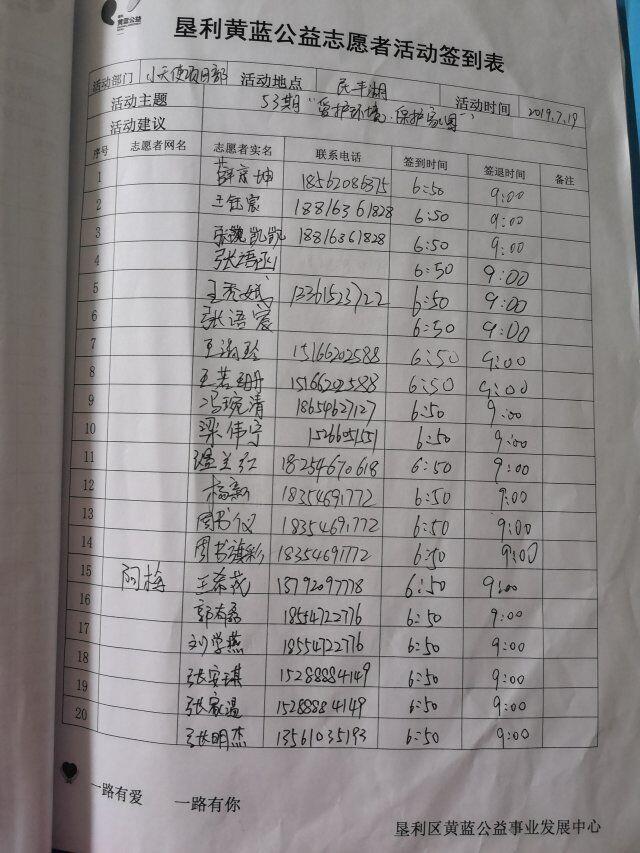 垦利黄蓝公益志愿者活动签到表
活动部门 小天使项目部 活动地点 民丰湖 活动时间 2019.7.19
活动主题 53期“爱护环境·保护家园”
活动建议
序号 志愿者网名 志愿者实名 联系电话 签到时间 签退时间 备注
1 薛京坤 18562086375 6:50 9:00
2 王钰宸 18816361828 6:50 9:00
3 凯凯 18816361828 6:50 9:00
4 张语 6:50 9:00
5 王秀 13361523722 6:50 9:00
6 张语宸 6:50 9:00
7 王 15166202588 6:50 9:00
8 王若珊 15166202588 6:50 9:00
9 冯琬清 18654627127 6:50 9:00
10 梁伟宁 6:50 9:00
11 18254670618 6:50 9:00
12 杨 18354691772 6:50 9:00
13 周书仪 18354691772 6:50 9:00
14 周书彩 18354691772 6:50 9:00
15 阿梅 王荣花 13792097718 6:50 9:00
16 郭 18554722776 6:50 9:00
17 刘学燕 18554722776 6:50 9:00
18 张安琪 15288884149 6:50 9:00
19 张家温 15288884149 6:50 9:00
20 张明杰 13561035193 6:50 9:00
一路有爱 一路有你
垦利区黄蓝公益事业发展中心